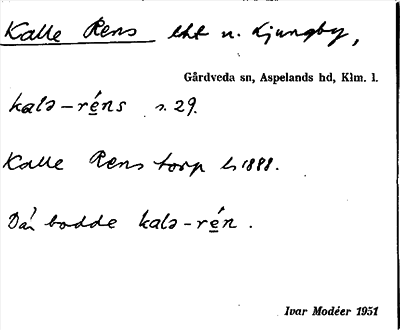 Kalle Rens lht u. Ljungby,
Gårdveda sn, Aspelands hd, Klm. l.
kalə-réns s. 29.
Kalle Rens torp Ls 1888.
Dä́r bodde kalə-rén.
Ivar Modéer 1951